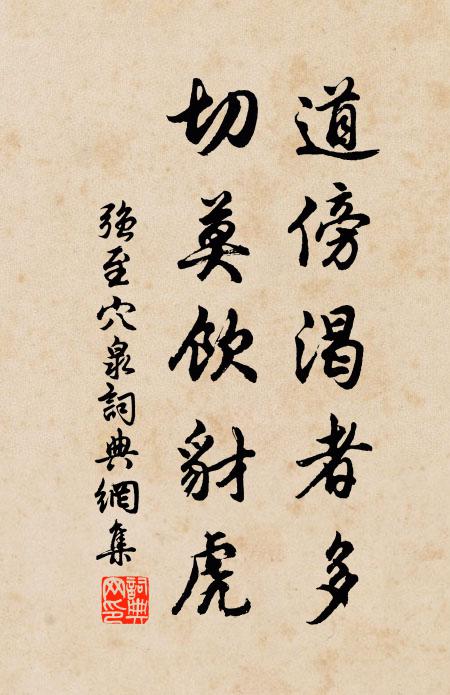 道傍渴者多
切莫飲豺虎
強至穴泉詞典網集
詞典網印